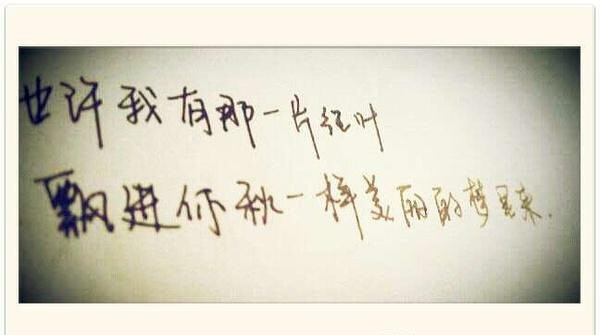 也许我有那一片红叶
飘进你秋一样美丽的梦里来.